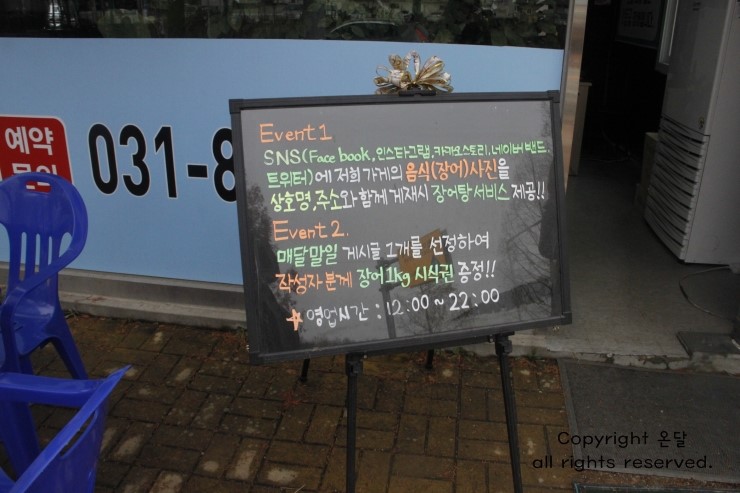 예약
문의
031-8
Event 1
SNS(Face book, 인스타그램, 카카오스토리, 네이버 밴드,
트위터)에 저희 가게의 음식(장어)사진을
상호명, 주소와 함께 게재시 장어탕 서비스 제공!!
Event 2.
매달말일 게시글 1개를 선정하여
작성자 분께 장어 1kg 시식권 증정!!
☆ 영업시간 : 12:00 ~ 22:00
Copyright 온달
all rights reserved.